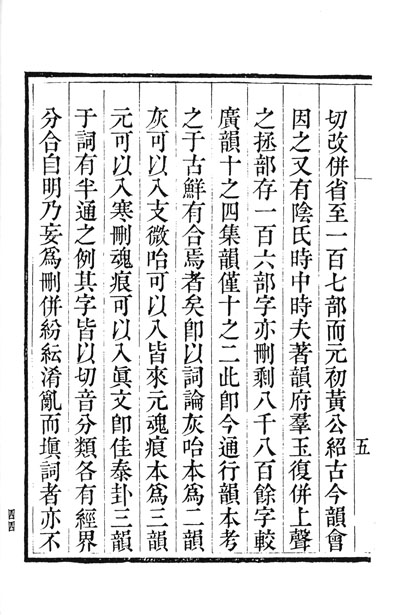 切改併省至一百七部而元初黃公紹古今韻會
因之又有陰氏時中時夫著韻府羣玉復併上聲
之拯部存一百六部字亦刪剩八千八百餘字較
廣韻十之四集韻僅十之二此卽今通行韻本考
之于古鮮有合焉者矣卽以詞論灰咍本爲二韻
灰可以入支微咍可以入皆來元魂痕本爲三韻
元可以入寒刪魂痕可以入眞文卽佳泰卦三韻
于詞有半通之例其字皆以切音分類各有經界
分合自明乃妄爲刪併紛紜淆亂而塡詞者亦不
五
四四